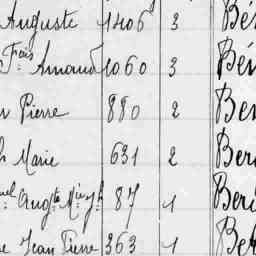 Auguste 1406 3 Bé
Fçois Arnaud 1060 3 Bé
Pierre 880 2 Be
Marie 631 2 Ber
Augte 87 1 Ber
Jean Pierre 363 1 Be